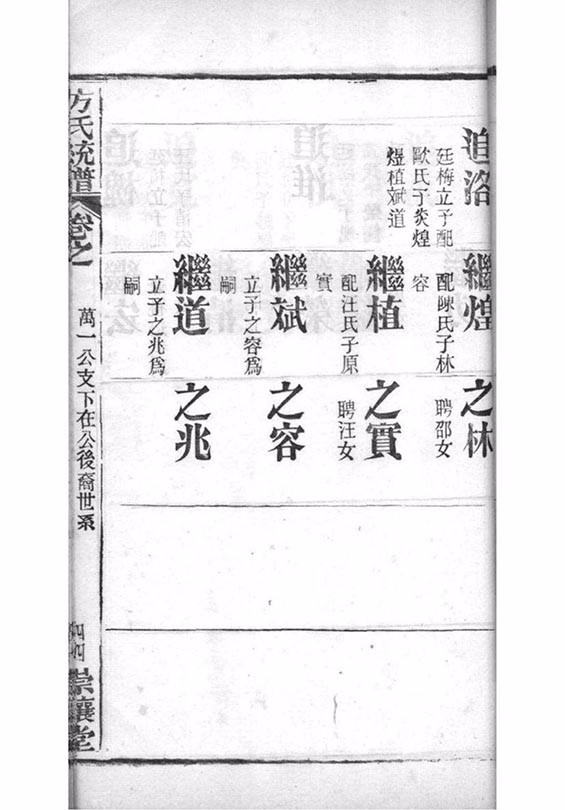 追洛
廷梅立子配
歐氏子炎煌
煜植斌道
繼煌
配陳氏子林
容
之林
聘邵女
繼植
配汪氏子原
實
之實
聘汪女
繼斌
立子之容爲
嗣
之容
繼道
立子之兆爲
嗣
之兆
方氏統譜
卷之
萬一公支下在公後裔世系
崇讓堂